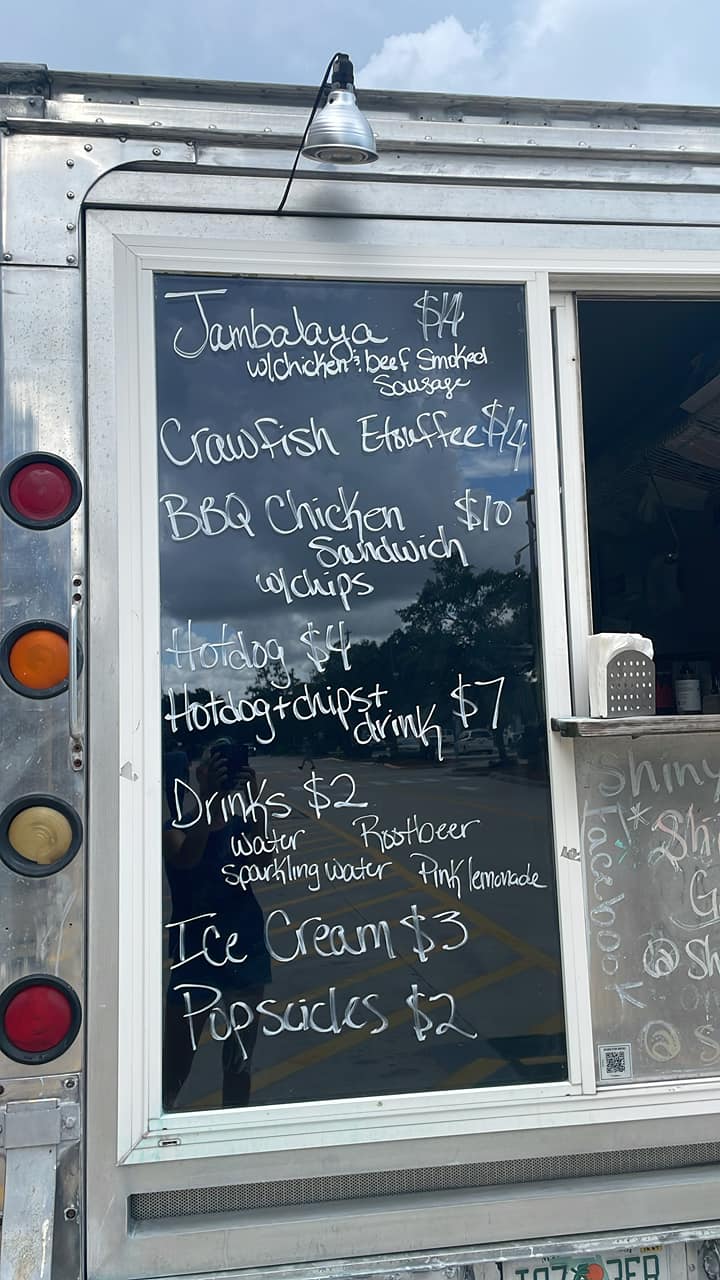 Jambalaya $14
w/chicken & beef Smoked
Sausage
Crawfish Etouffee $14
BBQ Chicken $10
Sandwich
w/chips
Hotdog $4
Hotdog + chips +
drink $7
Drinks $2
water Rootbeer
sparkling water Pink lemonade
Ice Cream $3
Popscicles $2
Shiny
Facebook
* Shi
G
Sh
S